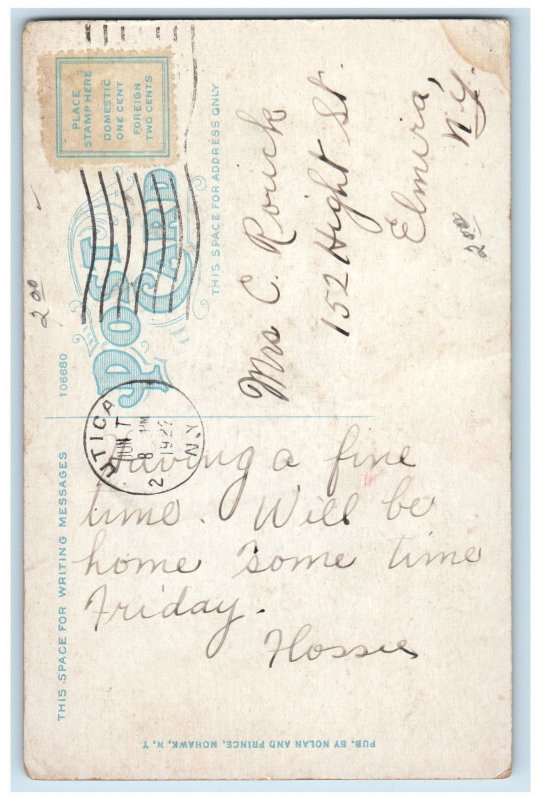 PLACE
STAMP HERE
DOMESTIC
ONE CENT
FOREIGN
TWO CENTS
POST
CARD
THIS SPACE FOR ADDRESS ONLY
106680
THIS SPACE FOR WRITING MESSAGES
UTICA
JUN 7
8 PM
1922
N.Y.
2
Mrs C. Rorick
152 Hight St.
Elmira,
N.Y.
2 00
2 80
Having a fine
time. Will be
home some time
Friday.
Flossie
PUB. BY NOLAN AND PRINCE, MOHAWK, N. Y.